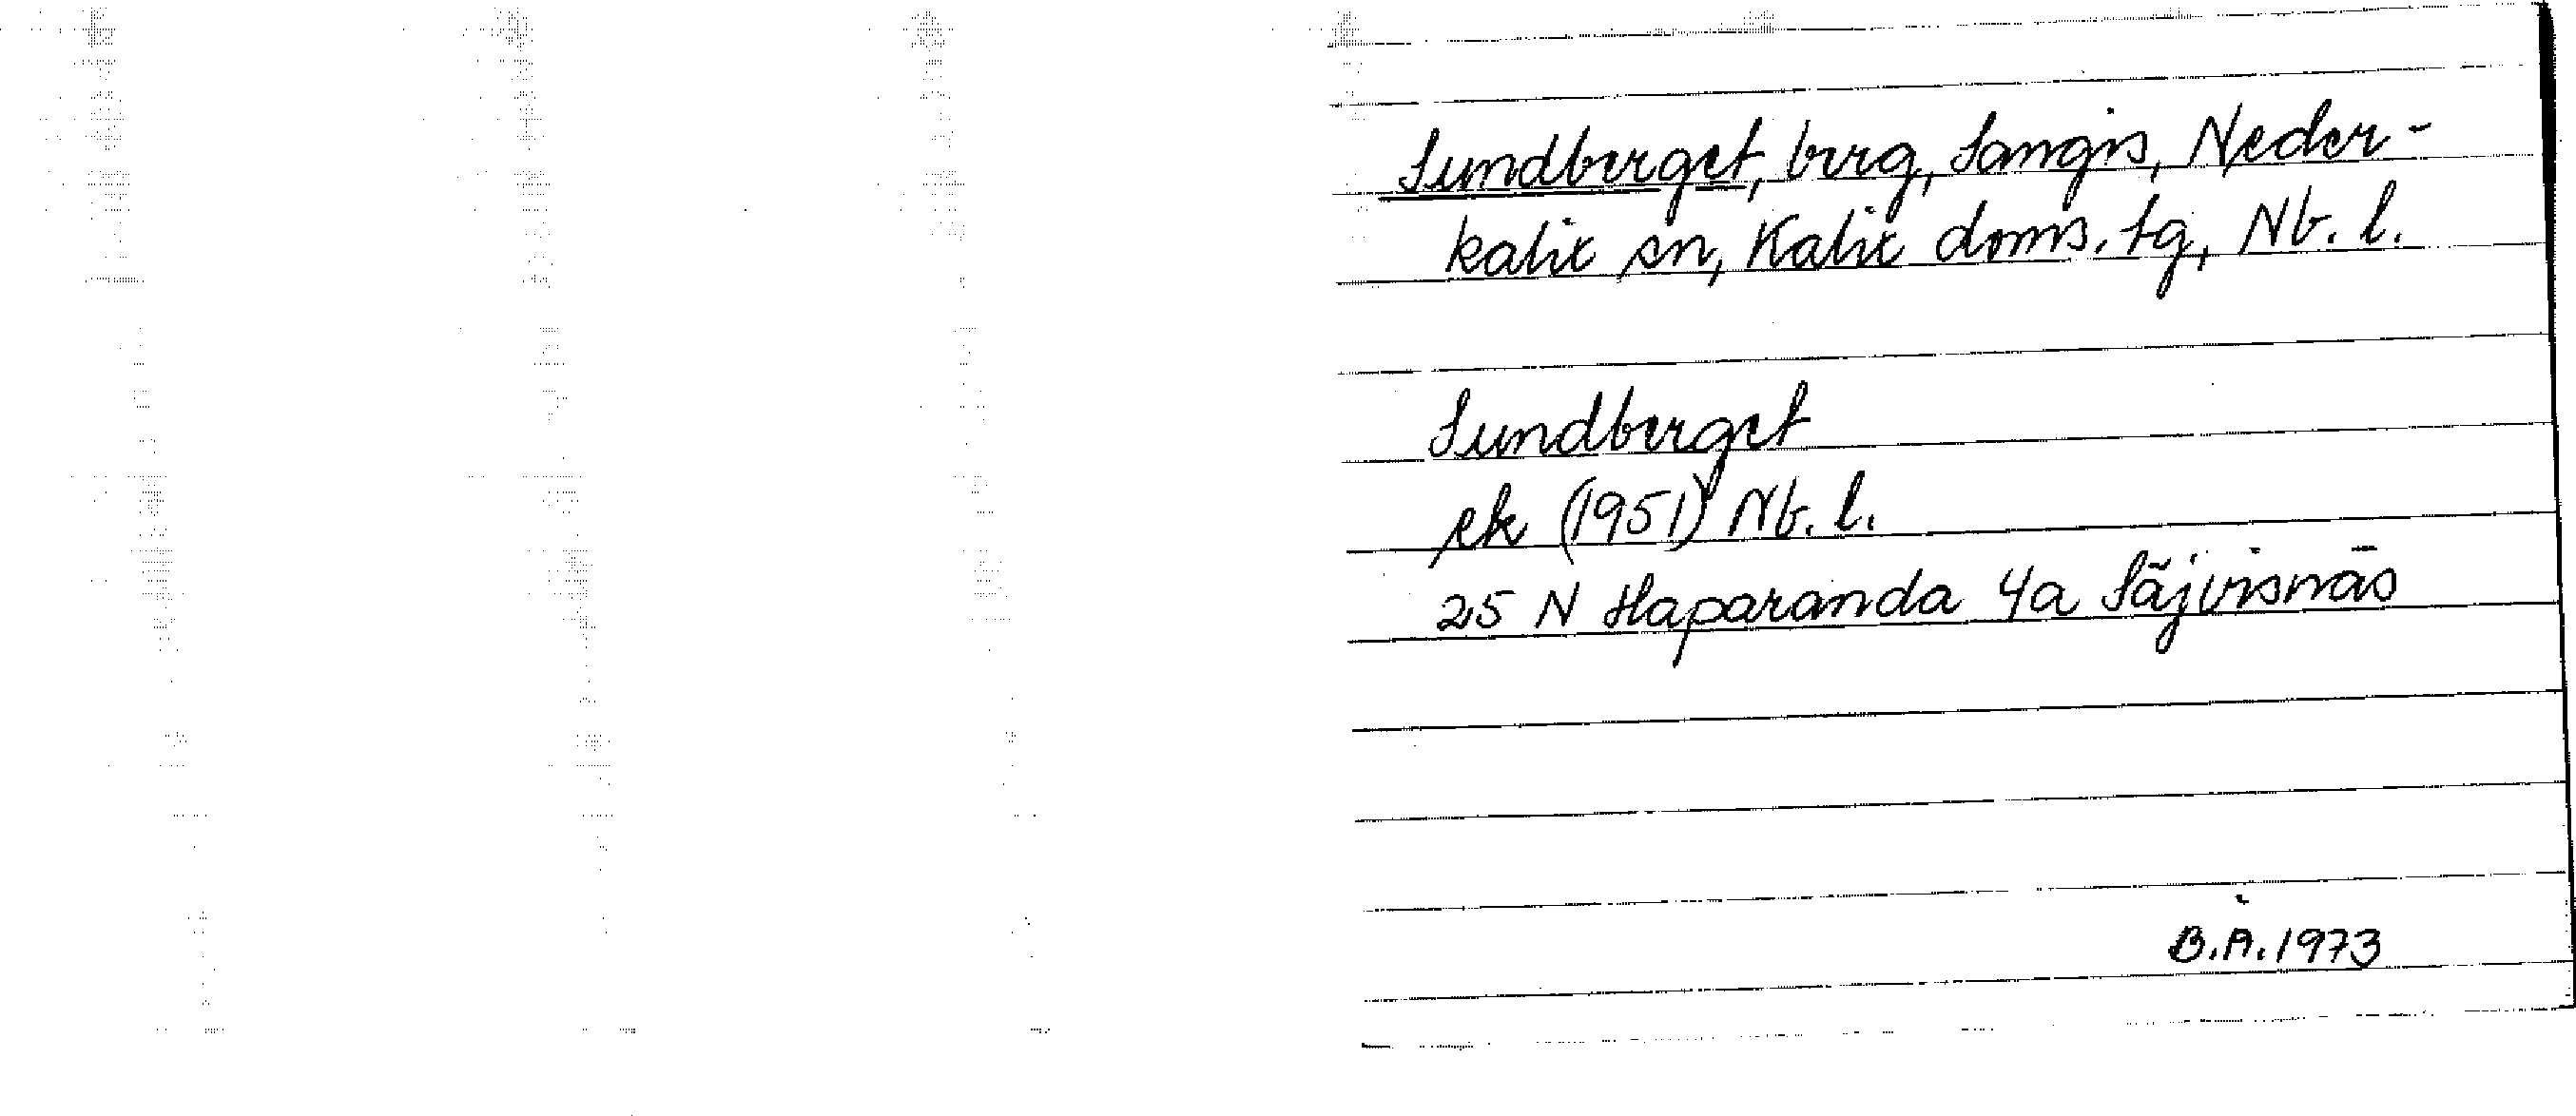 Sundberget, berg, Sangis, Neder-
kalix sn, Kalix doms.tg, Nb. l.
Sundberget
ek (1951) Nb. l.
25 N Haparanda 4a Säivisnäs
B.Å. 1973